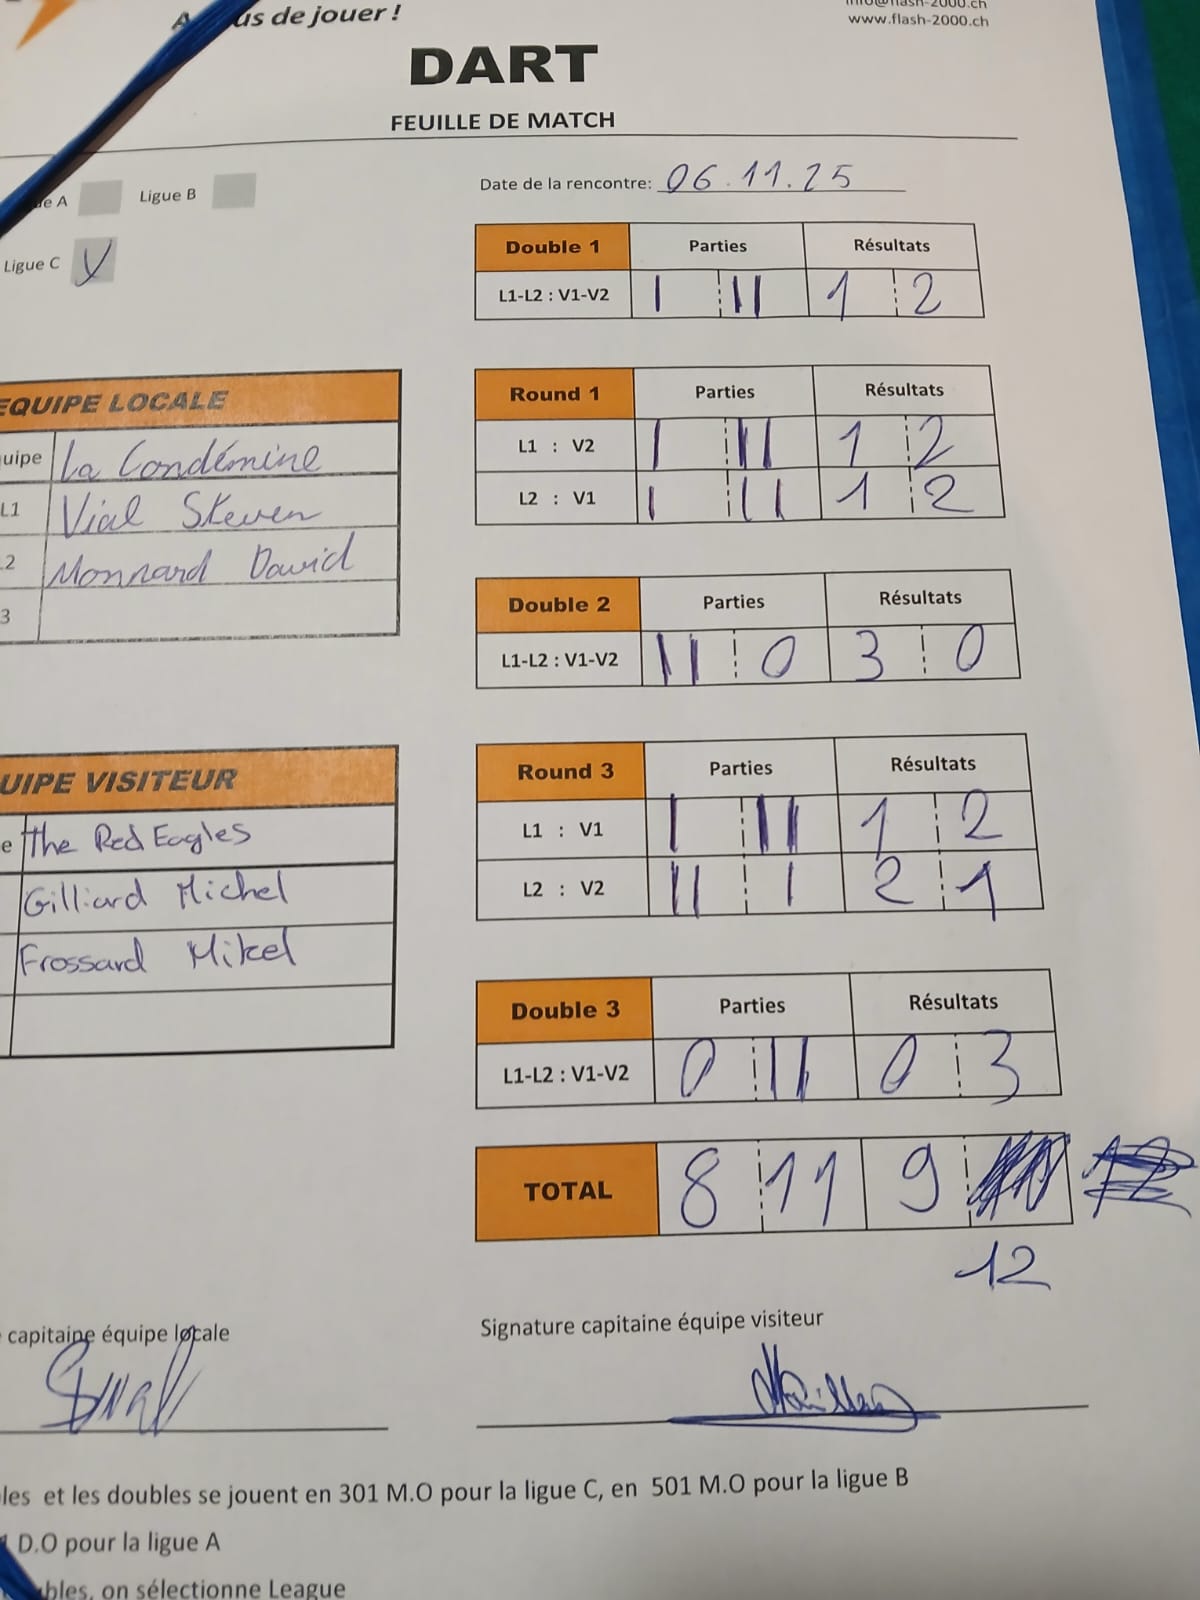 us de jouer !
info@flash-2000.ch
www.flash-2000.ch
DART
FEUILLE DE MATCH
Ligue B
Date de la rencontre: 06.11.25
Ligue C V
Double 1 Parties Résultats
L1-L2 : V1-V2 I II 1 2
Round 1 Parties Résultats
L1 : V2 I II 1 2
L2 : V1 I II 1 2
Double 2 Parties Résultats
L1-L2 : V1-V2 II 0 3 0
Round 3 Parties Résultats
L1 : V1 I II 1 2
L2 : V2 II I 2 1
Double 3 Parties Résultats
L1-L2 : V1-V2 0 II 0 3
TOTAL 8 11 9
12
EQUIPE LOCALE
uipe La Condémine
L1 Vial Steven
2 Monnard David
3
UIPE VISITEUR
e The Red Eagles
Gilliard Michel
Frossard Mikel
capitaine équipe locale
Signature capitaine équipe visiteur
les et les doubles se jouent en 301 M.O pour la ligue C, en 501 M.O pour la ligue B
D.O pour la ligue A
bles, on sélectionne League